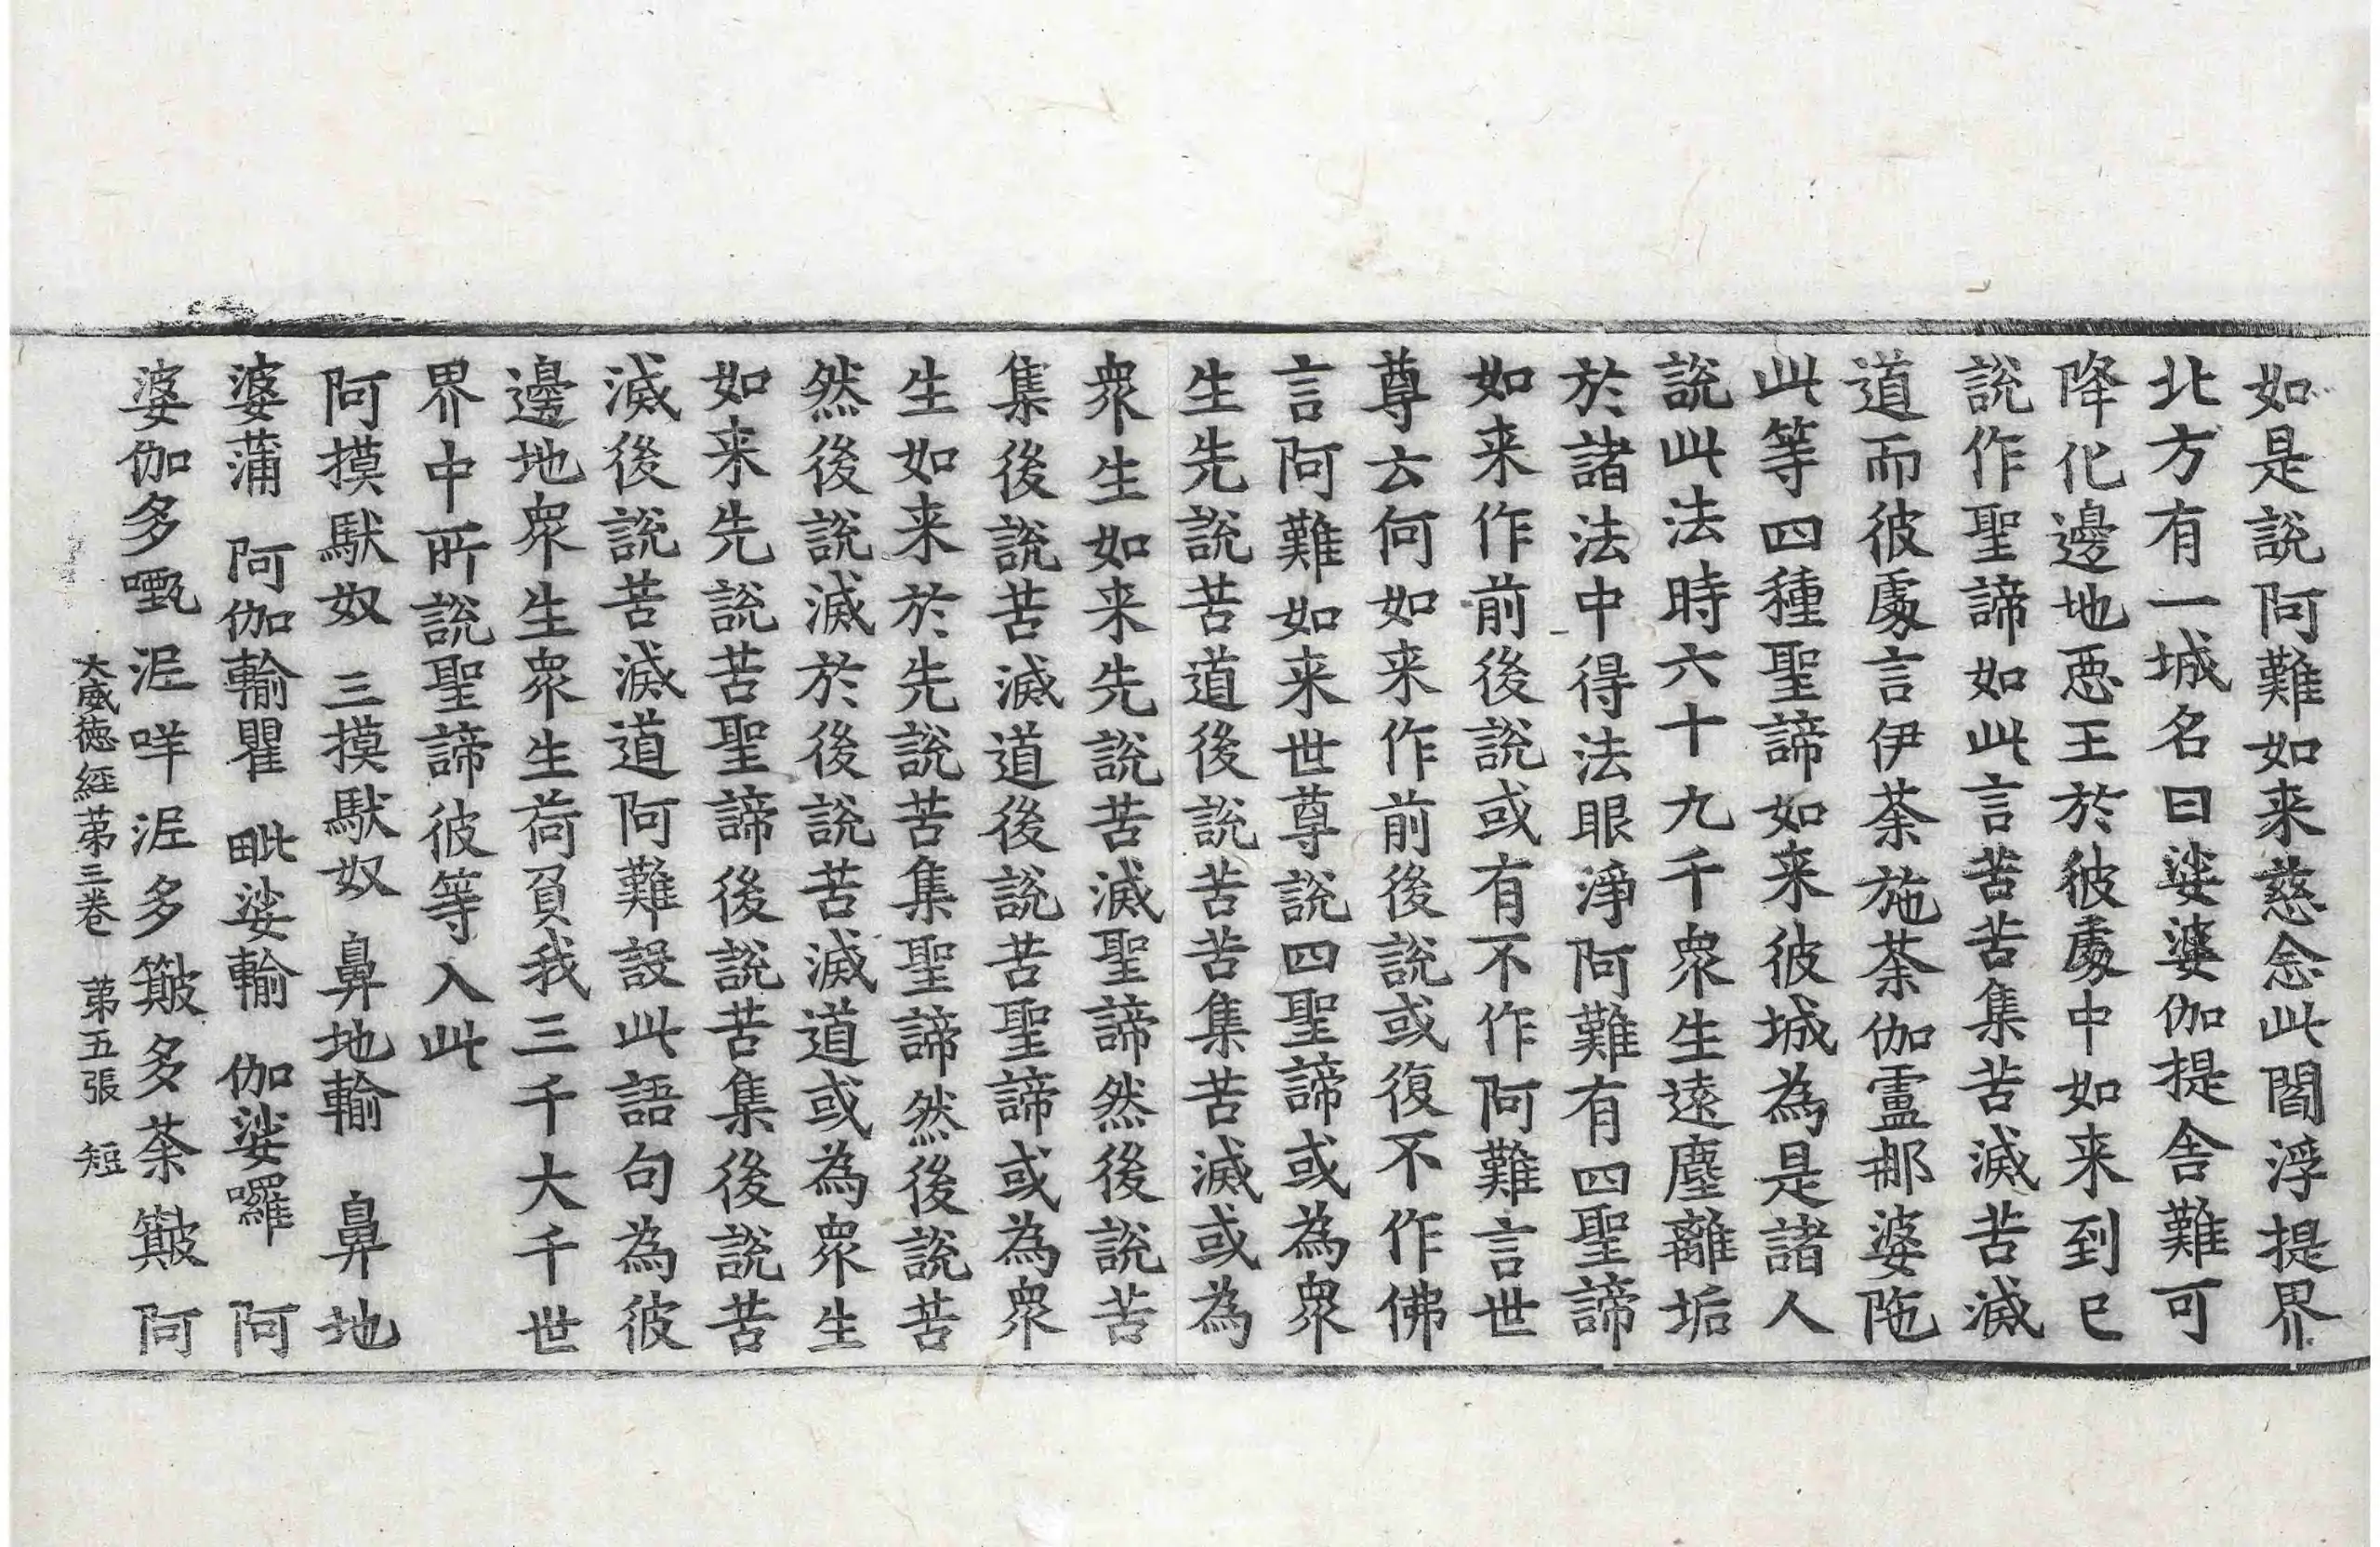 如是說阿難如来慈念此閻浮提界
北方有一城名曰娑婆伽提舎難可
降化邊地惡王於彼處中如来到已
說作聖諦如此言苦苦集苦滅苦滅
道而彼處言伊荼施荼伽靈那婆陁
此等四種聖諦如来彼城為是諸人
說此法時六十九千衆生遠塵離垢
於諸法中得法眼淨阿難有四聖諦
如来作前後說或有不作阿難言世
尊云何如来作前後說或復不作佛
言阿難如来世尊說四聖諦或為衆
生先說苦道後說苦苦集苦滅或為
衆生如来先說苦滅聖諦然後說苦
集後說苦滅道後說苦聖諦或為衆
生如来於先說苦集聖諦然後說苦
然後說滅於後說苦滅道或為衆生
如来先說苦聖諦後說苦集後說苦
滅後說苦滅道阿難設此語句為彼
邊地衆生衆生荷負我三千大千世
界中所說聖諦彼等入此
阿摸馱奴 三摸馱奴 鼻地輸 鼻地
婆蒲 阿伽輸瞿 毗娑輸 伽娑囉 阿
婆伽多㗨 泥咩泥多簸多荼簸 阿
大威德經第三卷 第五張 短